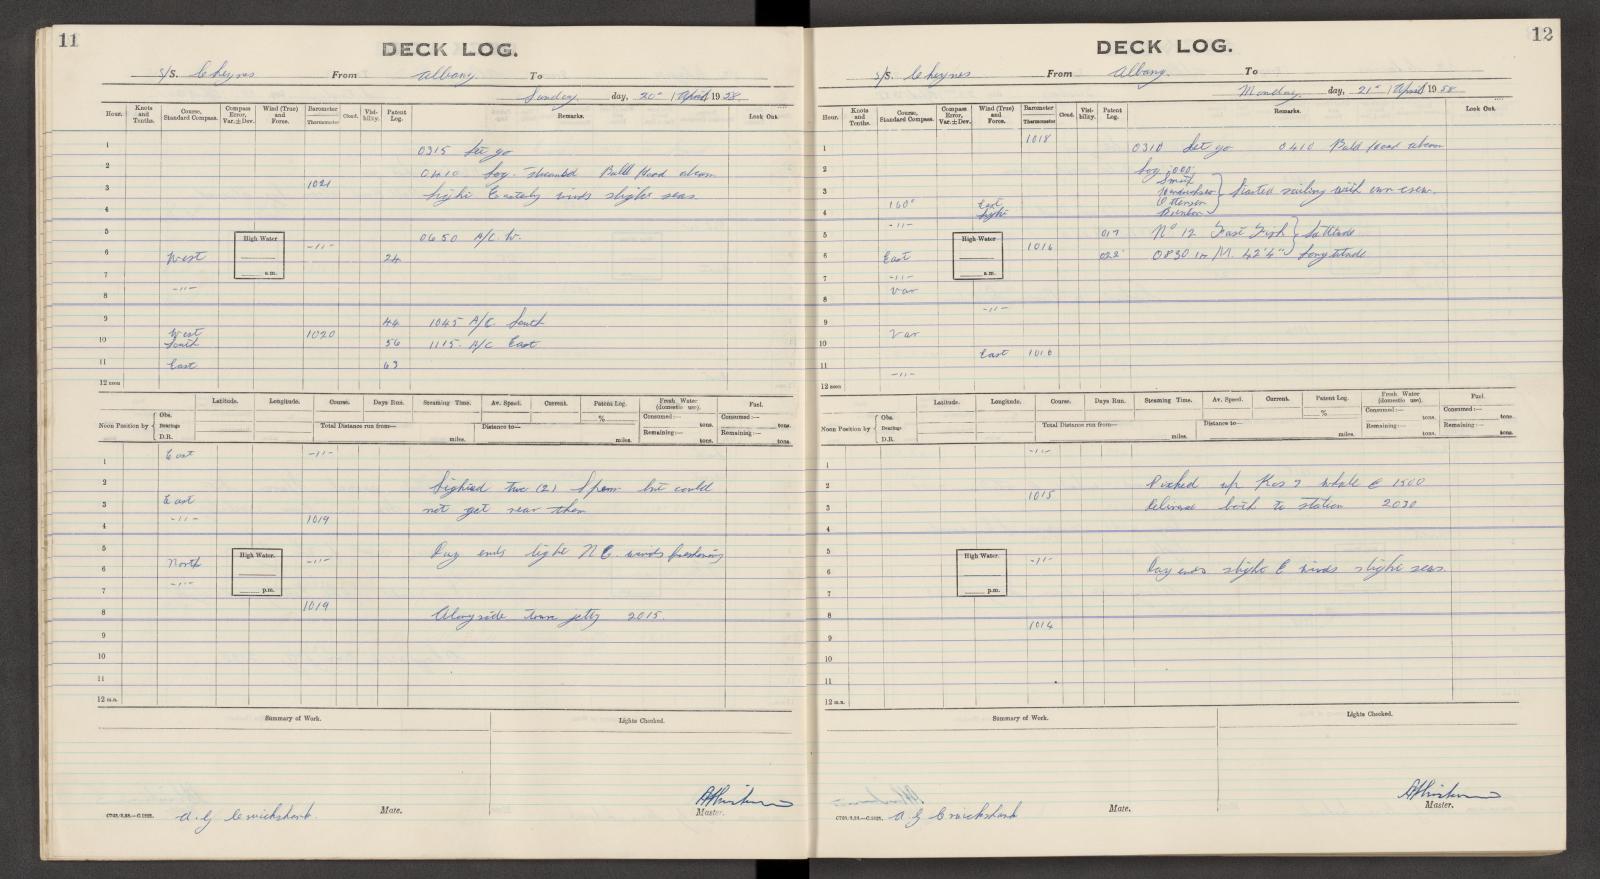 11
DECK LOG.
S/S. Cheynes From Albany To
Sunday day, 20th April 1958
Hour. Knots and Tenths. Course, Standard Compass. Compass Error, Var. ± Dev. Wind (True) and Force. Barometer Thermometer Cloud. Visibility. Patent Log. Remarks. Look Out.
1 0315 Let go
2 0410 Log streamed Bald Head abeam
3 1021 Light Easterly winds slight seas
4
5 0650 A/C. W.
High Water
a.m.
6 West -"- 24
7
8 -"-
9 44 1045 A/C. South
10 West South 1020 56 1115 A/C East
11 East 63
12 noon
Latitude. Longitude. Course. Days Run. Steaming Time. Av. Speed. Current. Patent Log. Fresh Water (domestic use). Fuel.
Noon Position by Obs. Bearings D.R.
% Consumed:— tons. Consumed:— tons.
Total Distance run from— miles. Distance to— miles. Remaining:— tons. Remaining:— tons.
East -"-
1
2 Sighted two (2) Sperm but could
3 East not get near them
4 -"- 1019
5 Day ends light N E. winds freshening
High Water.
p.m.
6 North -"-
7 -"-
8 1019 Alongside town jetty 2015.
9
10
11
12 m.n.
Summary of Work. Lights Checked.
A. G Cruickshank Mate. Master.
12
DECK LOG.
S/S. Cheynes From Albany. To
Monday. day, 21st April 1958
Hour. Knots and Tenths. Course, Standard Compass. Compass Error, Var. ± Dev. Wind (True) and Force. Barometer Thermometer Cloud. Visibility. Patent Log. Remarks. Look Out.
1018
1 0310 Let go 0410 Bald Head abeam
2 Log 000
3 Started sailing with own crew.
160° East
4 light
-"-
5 017 No 12 First Fish Latitude
High Water
a.m.
6 East 1016 022 Longitude
7 -"-
8 Var
-"-
9
10 Var
East
11 -"-
12 noon
Latitude. Longitude. Course. Days Run. Steaming Time. Av. Speed. Current. Patent Log. Fresh Water (domestic use). Fuel.
Noon Position by Obs. Bearings D.R.
% Consumed:— tons. Consumed:— tons.
Total Distance run from— miles. Distance to— miles. Remaining:— tons. Remaining:— tons.
-"-
1
2 Picked up Kos 7 whale @ 1500
3 1015 Delivered both to station 2030
4
5
High Water.
p.m.
6 -"- Day ends slight E winds slight seas.
7
8
1014
9
10
11
12 m.n.
Summary of Work. Lights Checked.
A. G Cruickshank Mate. Master.